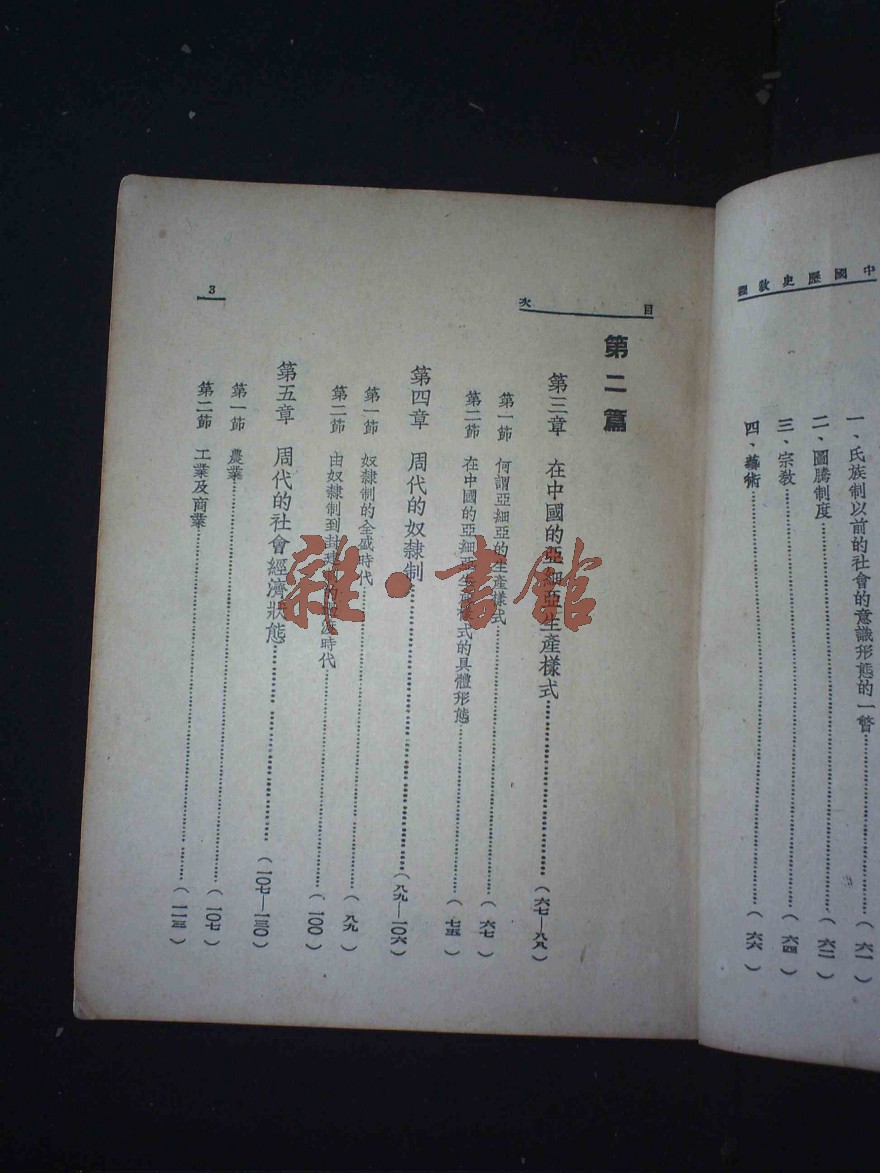 中國歷史教程
一、氏族制以前的社會的意識形態的一瞥……(六一)
二、圖騰制度……(六二)
三、宗教……(六四)
四、藝術……(六六)
目次
第二篇
第三章 在中國的亞細亞生產樣式……(六七—八八)
第一節 何謂亞細亞的生產樣式……(六七)
第二節 在中國的亞細亞生產樣式的具體形態……(七五)
第四章 周代的奴隸制……(八九—一〇六)
第一節 奴隸制的全盛時代……(八九)
第二節 由奴隸制到封建制的 時代……(一〇〇)
第五章 周代的社會經濟狀態……(一〇七—一三〇)
第一節 農業……(一〇七)
第二節 工業及商業……(一一三)
3
雜·書館